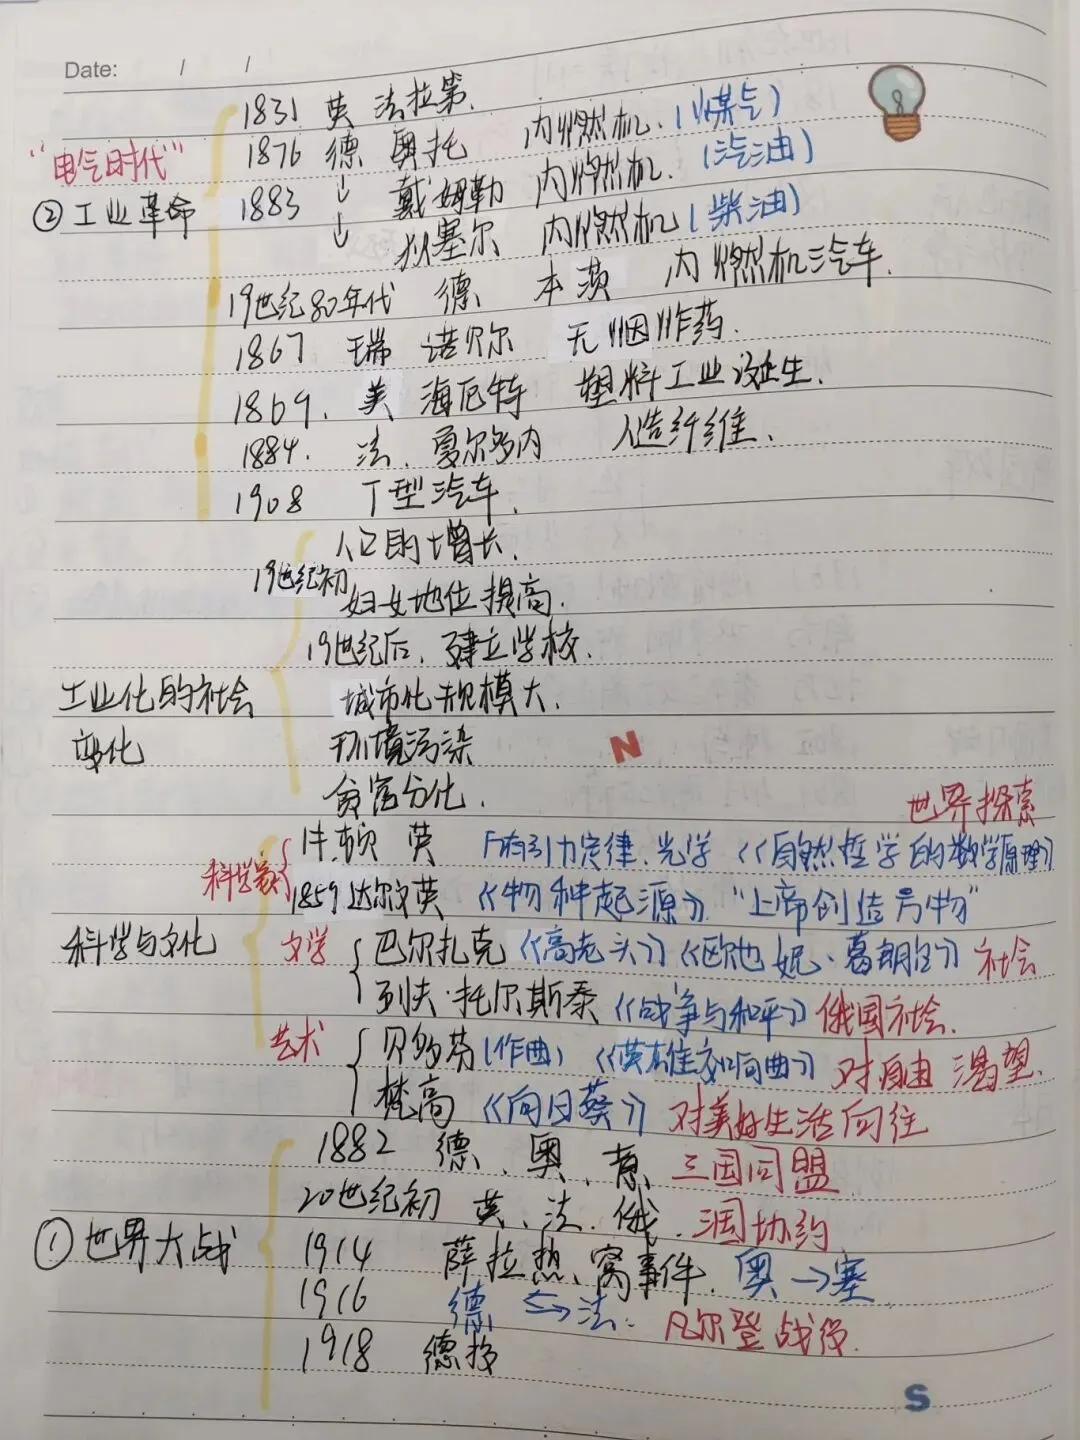 Date: / /
1831 英 法拉第.
"电气时代" 1876 德 奥托 内燃机.(煤气)
②工业革命 1883 ↓ 戴姆勒 内燃机.(汽油)
↓ 狄塞尔 内燃机(柴油)
19世纪80年代 德 本茨 内燃机汽车.
1867 瑞 诺贝尔 无烟炸药.
1869. 美 海厄特 塑料工业诞生.
1884. 法. 夏尔多内 人造纤维.
1908 T型汽车.
人口的增长.
19世纪初 妇女地位提高.
19世纪后.建立学校.
工业化的社会 城市化规模大.
变化 环境污染
N
贫富分化.
世界探索
科学家 牛顿 英 万有引力定律.光学《自然哲学的数学原理》
1859 达尔文英《物种起源》."上帝创造万物"
科学与文化 文学 巴尔扎克《高老头》《欧也妮·葛朗台》社会
列夫·托尔斯泰《战争与和平》俄国社会.
艺术 贝多芬(作曲)《英雄交响曲》对自由渴望.
梵高《向日葵》对美好生活向往
1882 德、奥、意 三国同盟
20世纪初 英、法、俄.三国协约
①世界大战 1914 萨拉热窝事件.奥→塞
1916 德 ⇆ 法. 凡尔登战役.
1918 德投
S